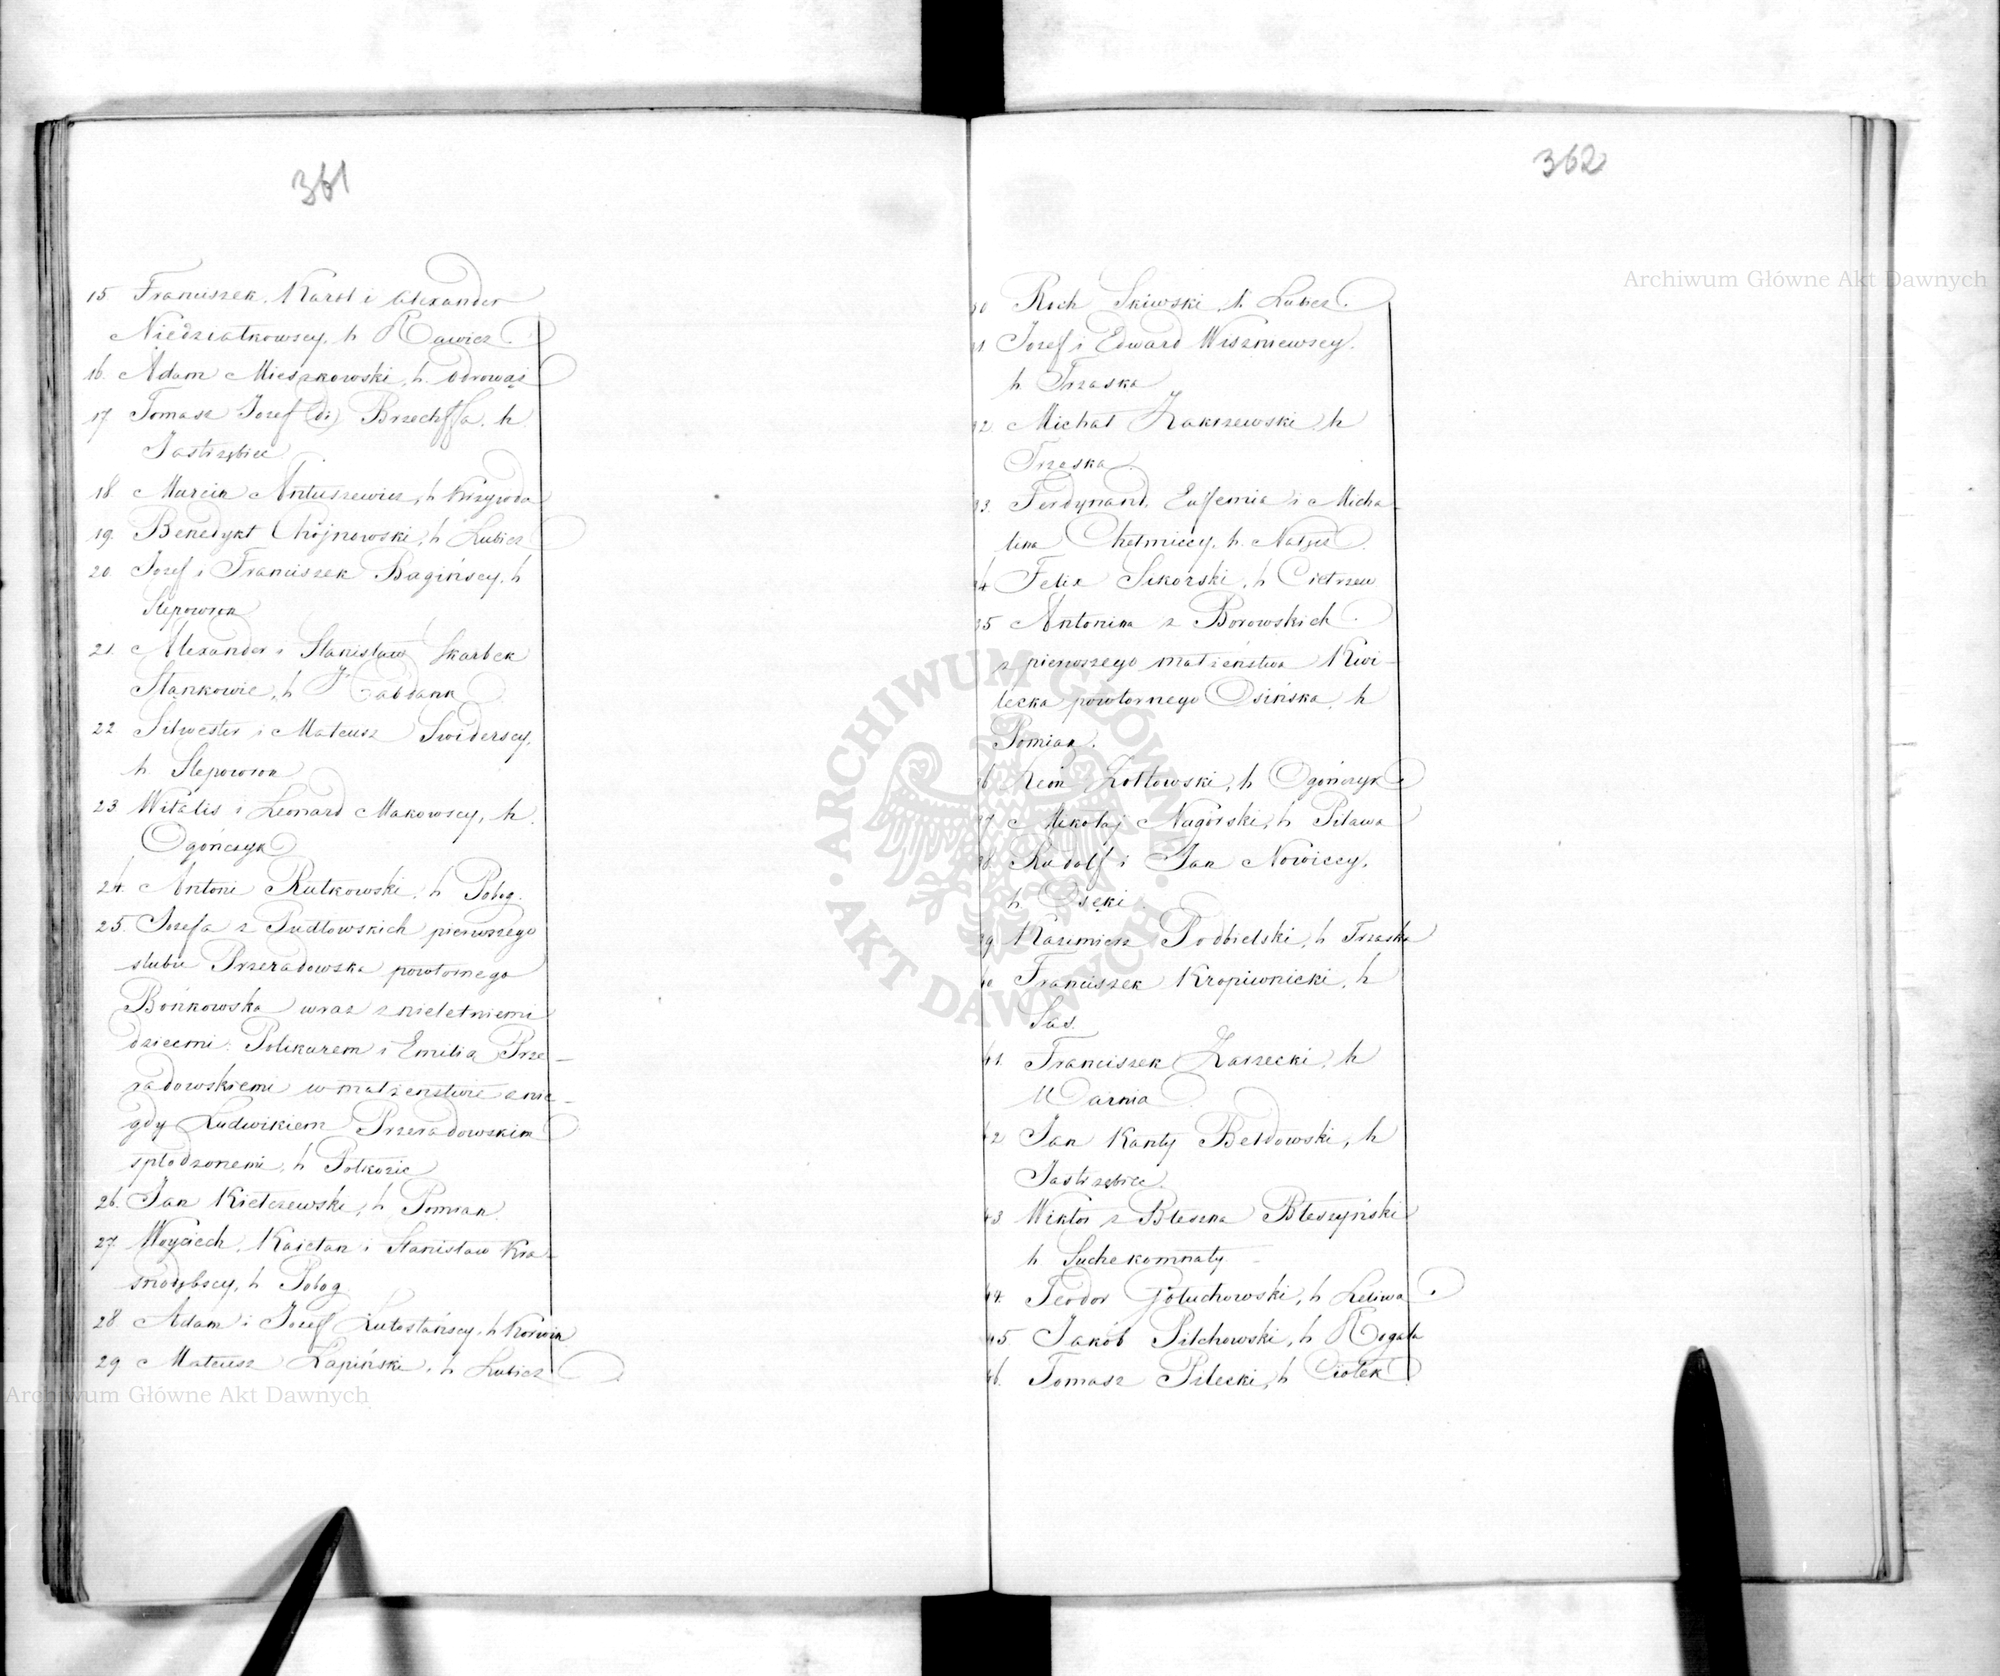 361
15. Franciszek, Karol i Alexander
Niedziałkowscy, h Rawicz.
16. Adam Mieszkowski, h. Odrowąż
17. Tomasz Jozef (2i) Brzechffa, h
Jastrzębiec
18. Marcin Antuszewicz, h Krzywda
19. Benedykt Chojnowski, h Lubicz
20. Jozef i Franciszek Bagińscy, h
Slepowron
21. Alexander i Stanisław Skarbek
Stankowie, h Habdank
22 Silwester i Mateusz Swiderscy,
h Slepowron
23 Witalis i Leonard Makowscy, h
Ogończyk
24. Antoni Rutkowski, h Pobog.
25. Jozefa z Pudłowskich pierwszego
slubu Przeradowska powtornego
Bońkowska wraz z nieletniemi
dziecmi: Polikarem i Emilią Prze-
radowskiemi w małzenstwie z nie-
gdy Ludwikiem Przeradowskim
spłodzonemi, h Połkozic
26. Jan Kiełczewski, h Pomian.
27. Woyciech, Kaietan i Stanisław Kra-
snodębscy, h Pobog
28 Adam i Jozef Lutostańscy, h Korwin
29. Mateusz Łapiński, h Lubicz
362
30 Roch Skiwski, h Lubicz.
31 Jozef i Edward Wiszniewscy,
h Trzaska
32. Michał Zakrzewski, h
Trzaska.
33. Ferdynand, Eufemia i Micha-
lina Chełmiccy, h. Nałęcz.
34 Felix Sikorski, h Cietrzew
35 Antonina z Borowskich
z pierwszego małżeństwa Kwi-
lecka powtornego Osińska, h
Pomian.
36 Leon Zołtowski, h Ogończyk
37 Mikołaj Nagórski, h Pilawa
38. Rudolf i Jan Nowiccy,
h Osęki.
39 Kazimierz Podbielski, h Trzaska
40 Franciszek Kropiwnicki, h
Sas.
41. Franciszek Zarzecki, h
Warnia.
42 Jan Kanty Bełdowski, h
Jastrzębiec.
43. Wiktor z Bleszna Bleszyński
h Suchekomnaty.
44. Teodor Gołuchowski, h Leliwa.
45. Jakób Pilchowski, h Rogala
46. Tomasz Pilecki, h Ciołek
Archiwum Główne Akt Dawnych
Archiwum Główne Akt Dawnych
ARCHIWUM GŁÓWNE · AKT DAWNYCH ·